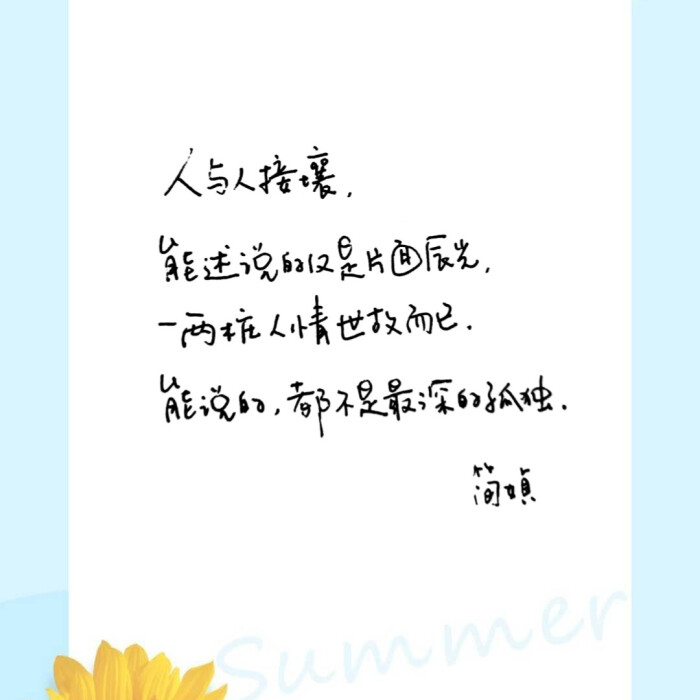 人与人接壤,
能述说的仅是片面辰光,
一两桩人情世故而已.
能说的,都不是最深的孤独.
简媜
Summer